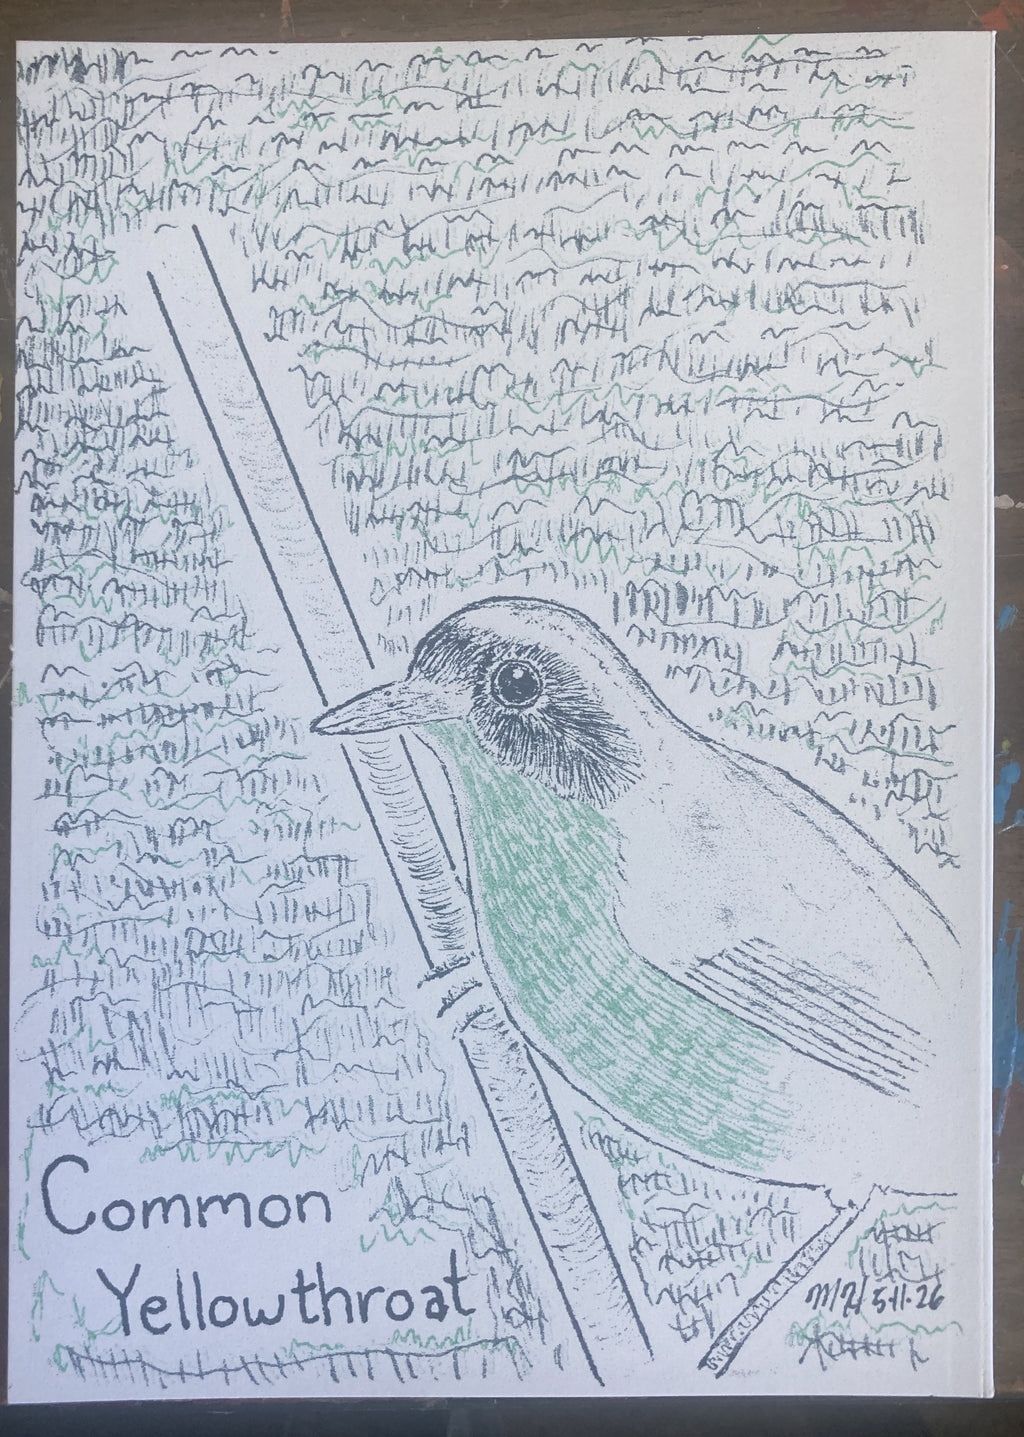 Common
Yellowthroat
5-11-26